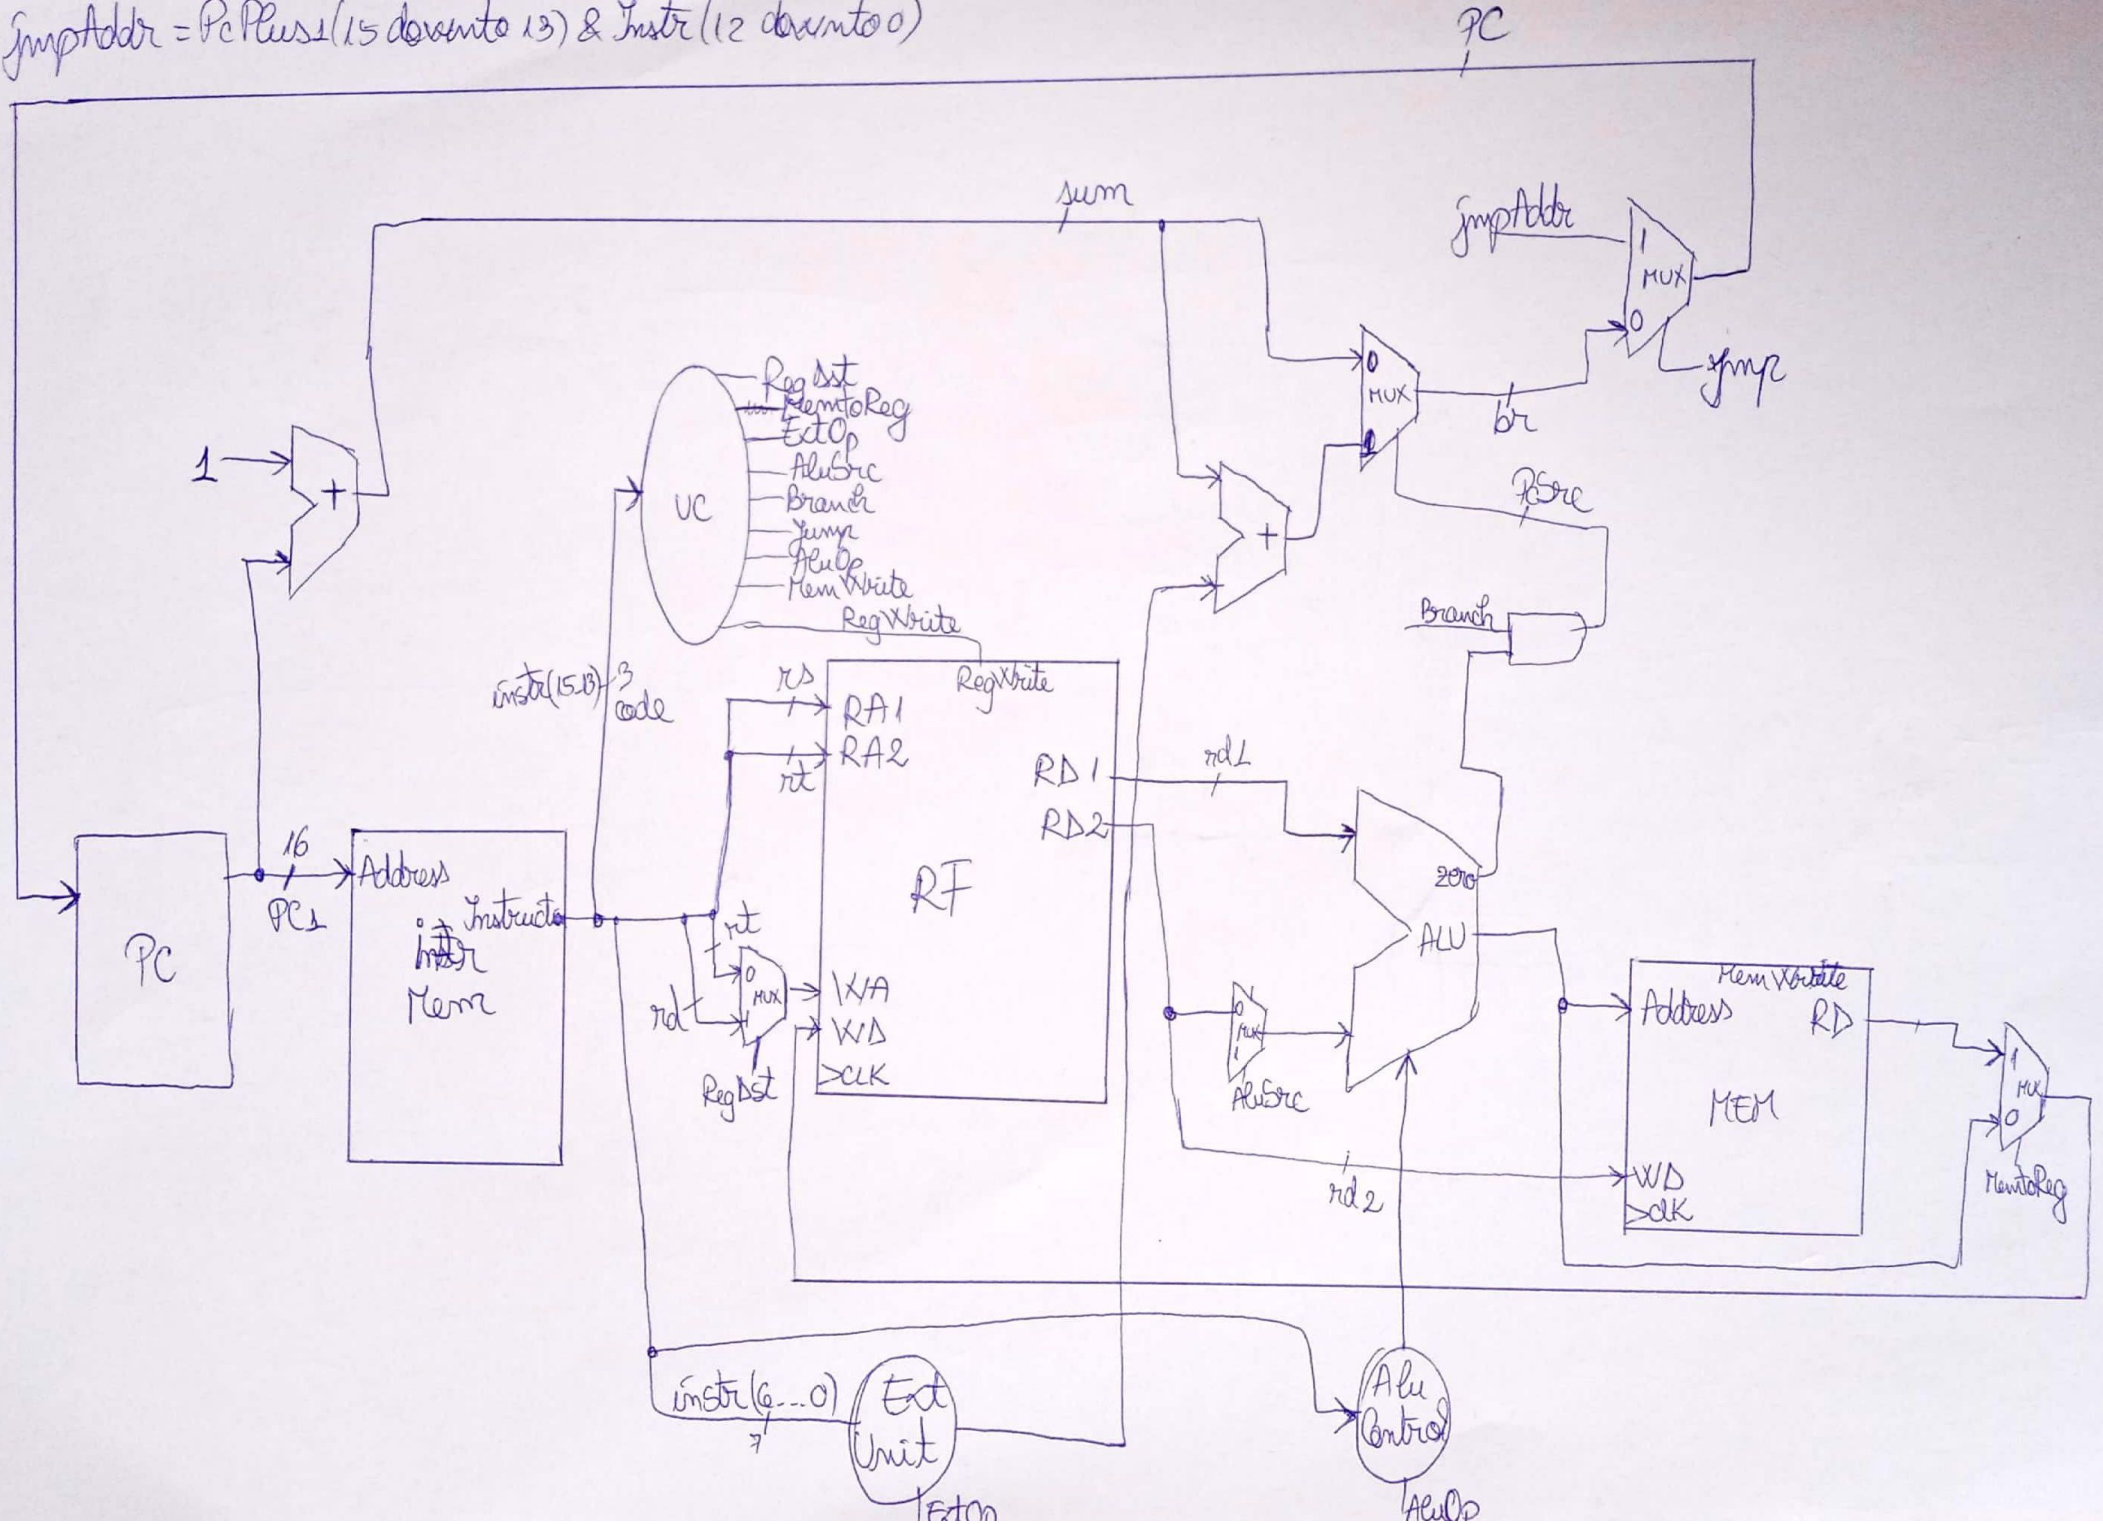 jmpAddr = PcPlus1(15 downto 13) & Instr(12 downto 0)
PC
sum
jmpAddr
1
MUX
0
jmp
0
MUX
1
br
PcSrc
RegDst
MemtoReg
ExtOp
AluSrc
Branch
Jump
AluOp
MemWrite
RegWrite
UC
1
+
+
Branch
instr(15-13)
3
code
rs
RA1
rt
RA2
RegWrite
RD1
rd1
RD2
RF
16
PC1
PC
Address
Instruct
Instr
Mem
rt
0
MUX
1
rd
RegDst
WA
WD
>CLK
zero
ALU
0
MUX
1
AluSrc
MemWrite
Address
RD
MEM
WD
>clk
rd2
1
MUX
0
MemtoReg
instr(6...0)
7
Ext
Unit
ExtOp
Alu
Control
AluOp